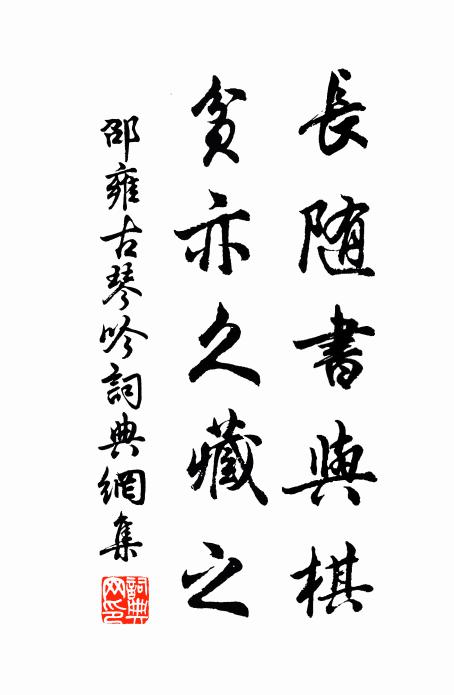 長随書與棋
貧亦久藏之
邵雍古琴吟詞典網集
詞典網印